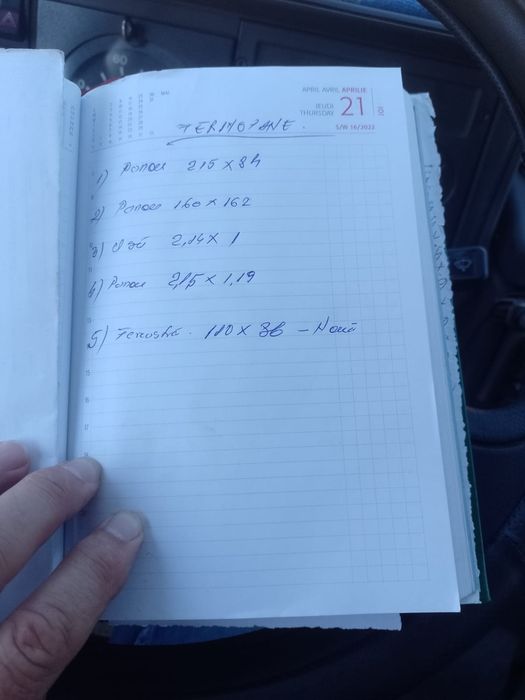 APRIL AVRIL APRILIE
JEUDI
THURSDAY
21
JOI
S/W 16/2022
TERMOPANE.
1) Panou 215 x 84
2) Panou 160 x 162
3) Ușă 2,14 x 1
4) Panou 2,15 x 1,19
5) Fereastră. 110 x 86 - Nouă
15
16
17
60